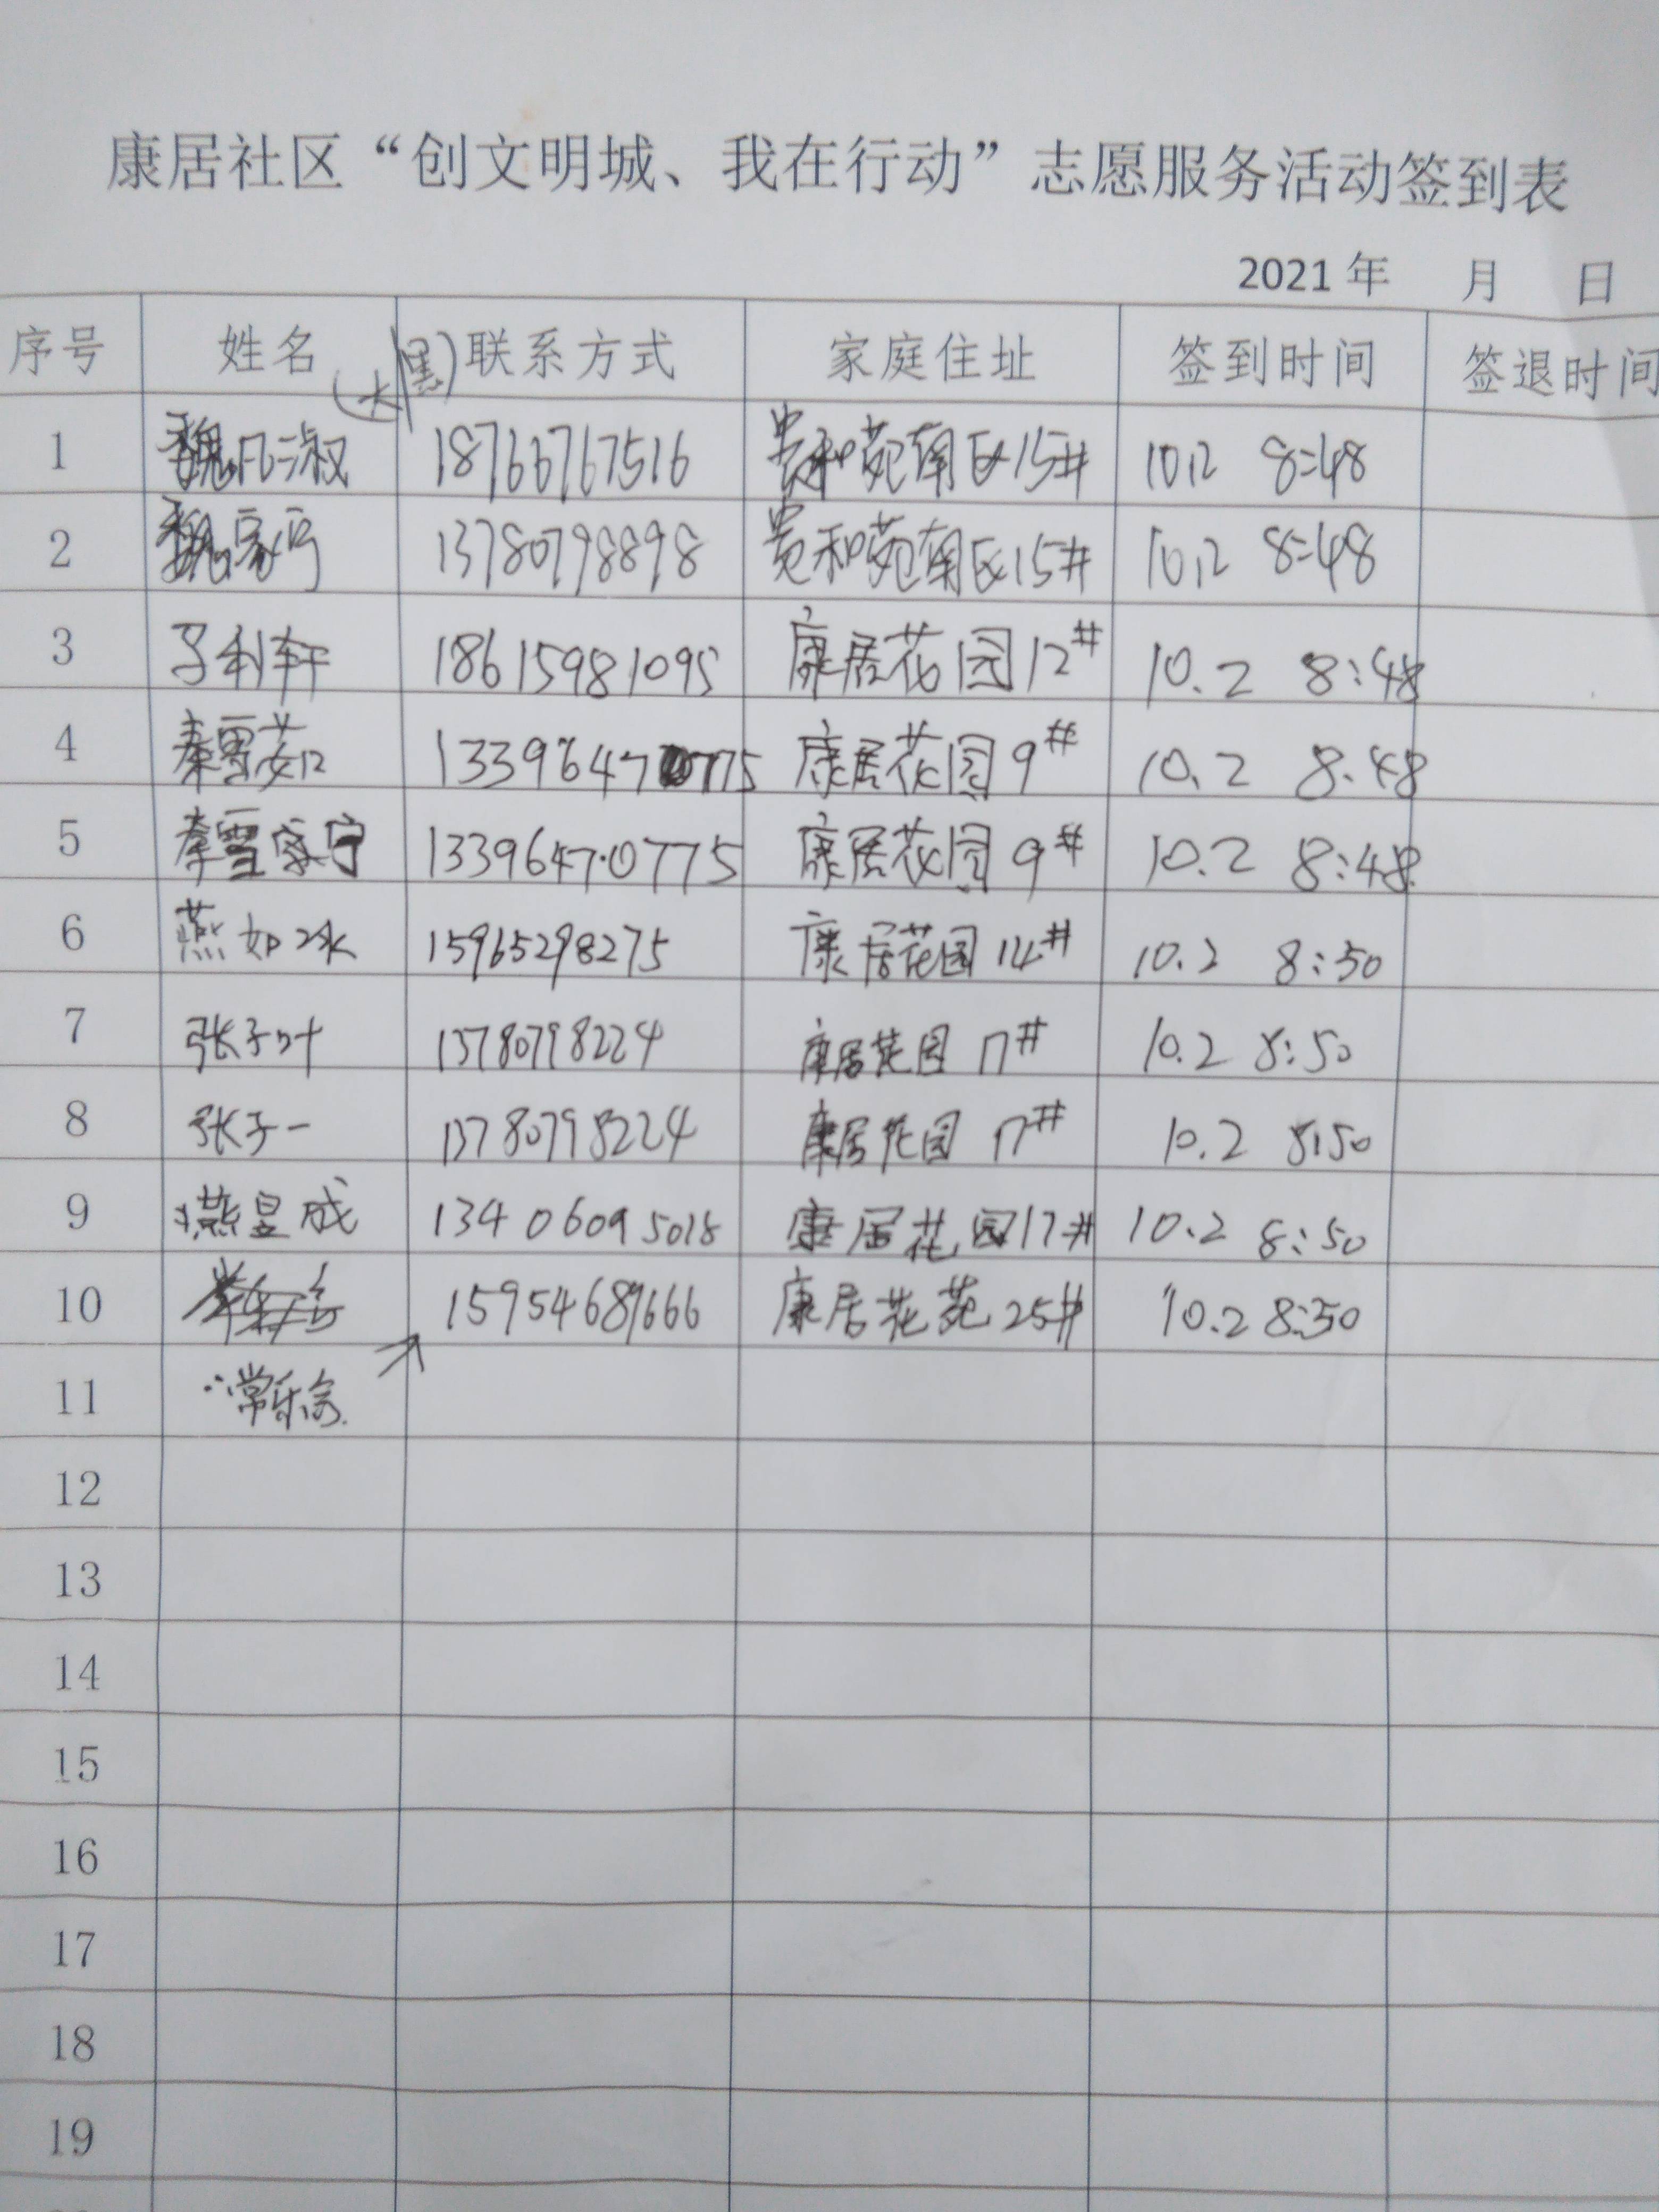 康居社区“创文明城、我在行动”志愿服务活动签到表
2021 年 月 日
序号 姓名 联系方式 家庭住址 签到时间 签退时间
1 魏凡淑 18766767516 贵和苑南区15# 10.2 8:48
2 魏家 13780798898 贵和苑南区15# 10.2 8:48
3 利轩 18615981095 康居花园12# 10.2 8:48
4 秦雪茹 13396470775 康居花园9# 10.2 8:48
5 秦雪家宁 13396470775 康居花园9# 10.2 8:48
6 燕如冰 15965298275 康居花园14# 10.2 8:50
7 张子叶 13780798224 康居花园17# 10.2 8:50
8 张子一 13780798224 康居花园17# 10.2 8:50
9 燕昱成 13406095018 康居花园17# 10.2 8:50
10 15954689666 康居花苑25# 10.2 8:50
11 常乐
12
13
14
15
16
17
18
19